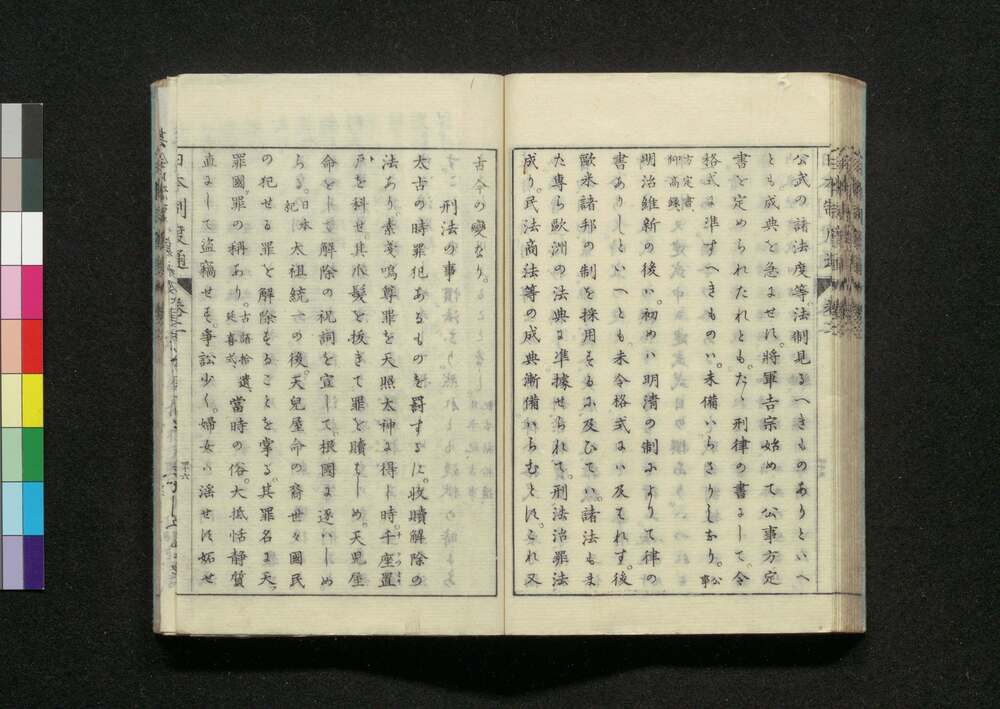 公武の諸法度等。法制見るへきものありといへ
とも成典を急ませす。將軍吉宗始めて公事方定
書を定められたれとも。たゝ刑律の書よして。令
格式ょ準すへきものハ。未備ハらさりしなり。公事
方定書、
仰高録、
明治維新の後ハ。初めハ明清の制ょよりて律の
書ありしといへとも。未令格式ょハ及てれす。後
歐米諸邦の制を採用するょ及ひてハ。諸法もま
た專ら歐洲の法典ょ準據せられて。刑法治罪法
成り。民法商法等の成典漸備ハらむとす。これ又
古今の變なり。
刑法の事
太古の時罪犯あるものを罰するに。收贖解除の
法あり。素戔嗚尊罪を天照太神ょ得し時。千座置
戸を科せ。其爪髮を拔きて罪を贖ハしめ。天兒屋
命をして解除の祝詞を宣して。根國ょ逐ハしめ
らる。日本紀、太祖統一の後。天兒屋命の裔世々國民
の犯せる罪を解除することを掌る。其罪名ょ天
罪國。罪の稱あり。古語拾遺、延喜式、當時の俗。大抵恬靜質
直ょして盜竊せす。爭訟少く。婦女ハ淫せす妬せ
日本制度通
卷二